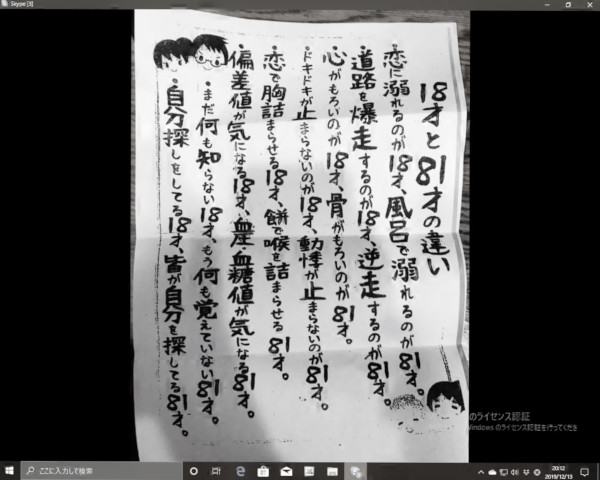 Skype [3]
18才と81才の違い
・恋に溺れるのが18才、風呂で溺れるのが81才。
・道路を爆走するのが18才、逆走するのが81才。
・心がもろいのが18才、骨がもろいのが81才。
・ドキドキが止まらないのが18才、動悸が止まらないのが81才。
・恋で胸詰まらせる18才、餅で喉を詰まらせる81才。
・偏差値が気になる18才、血圧・血糖値が気になる81才。
・まだ何も知らない18才、もう何も覚えていない81才。
・自分探しをしてる18才、皆が自分を探してる81才。
のライセンス認証
Windows のライセンス認証を行ってくださ
ここに入力して検索
20:12
2019/12/13